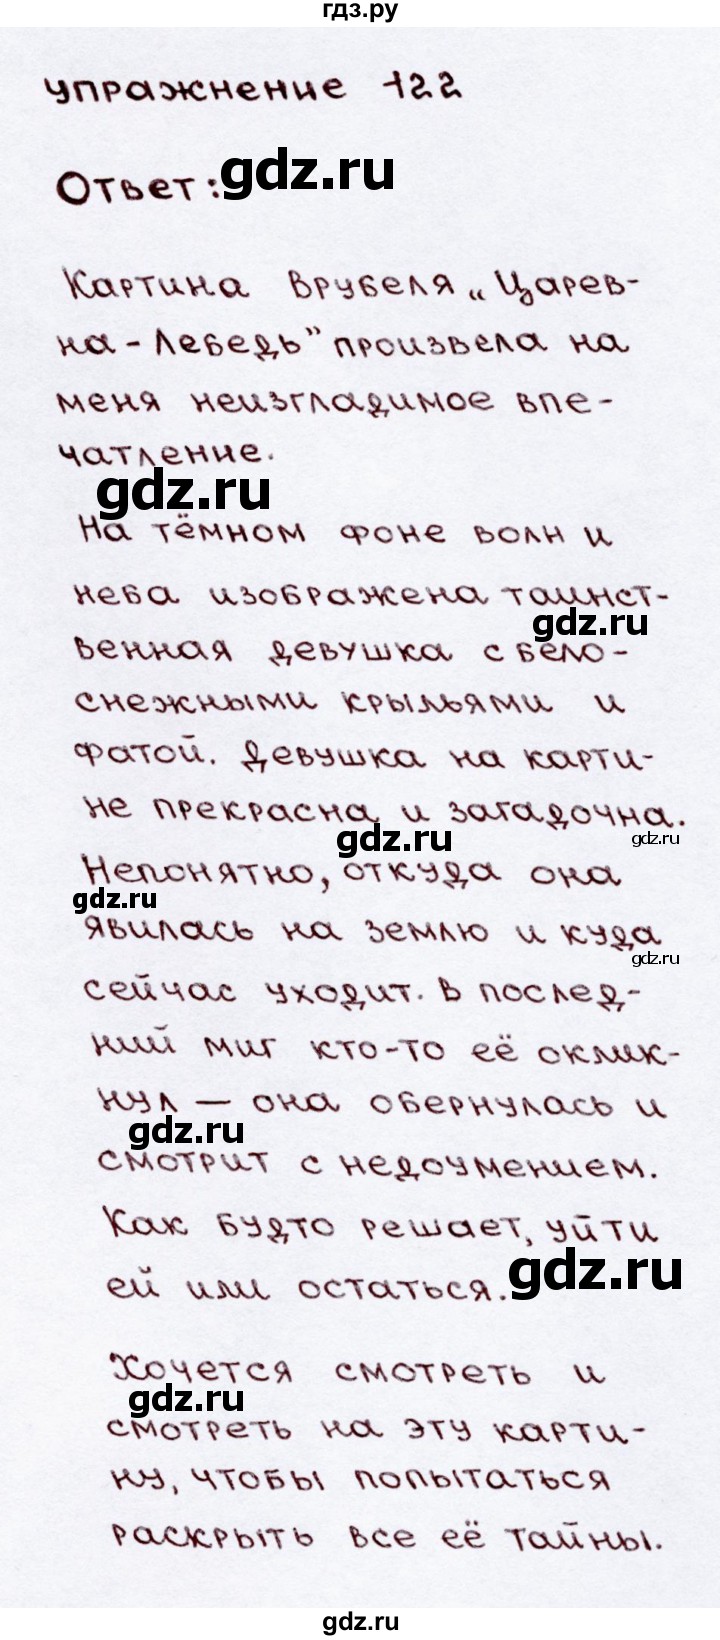 гдз.ру
упражнение 122
Ответ:
gdz.ru
Картина Врубеля „Царев-
на-Лебедь” произвела на
меня неизгладимое впе-
чатление.
gdz.ru
На тёмном фоне волн и
неба изображена таинст-
gdz.ru
венная девушка с бело-
снежными крыльями и
фатой. Девушка на карти-
не прекрасна и загадочна.
gdz.ru
gdz.ru
Непонятно, откуда она
gdz.ru
явилась на землю и куда
gdz.ru
сейчас уходит. В послед-
ний миг кто-то её оклик-
нул — она обернулась и
gdz.ru
смотрит с недоумением.
Как будто решает, уйти
ей или остаться.
gdz.ru
Хочется смотреть и
gdz.ru
смотреть на эту карти-
ну, чтобы попытаться
раскрыть все её тайны.
gdz.ru